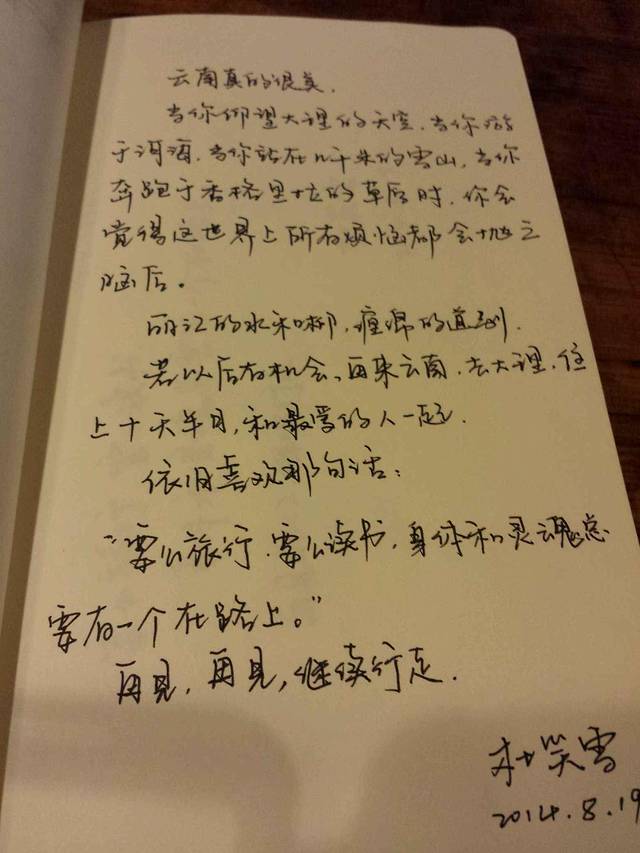 云南真的很美.
当你仰望大理的天空.当你游
于洱海.当你站在几千米的雪山.当你
奔跑于香格里拉的草原时.你会
觉得这世界上所有烦恼都会抛之
脑后。
丽江的水和柳,
的
若以后有机会、再来云南.去大理.住
上十天半月,和最爱的人一起.
依旧喜欢那句话:
“要么旅行.要么读书,身体和灵魂总
要有一个在路上。”
再见,再见,继续行走.
笑雪
2014.8.19